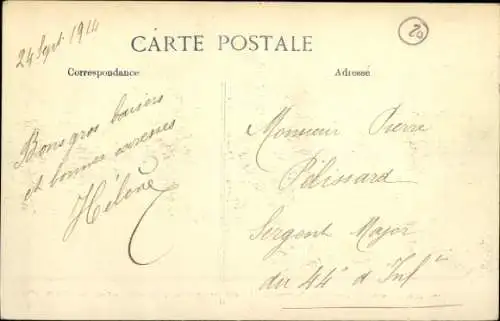 24 Sept 1914
20
CARTE POSTALE
Correspondance
Adresse
Bons gros baisers
et bonnes caresses
Hélène
Monsieur Pierre
Pelissard
Sergent Major
du 44e d'Infie